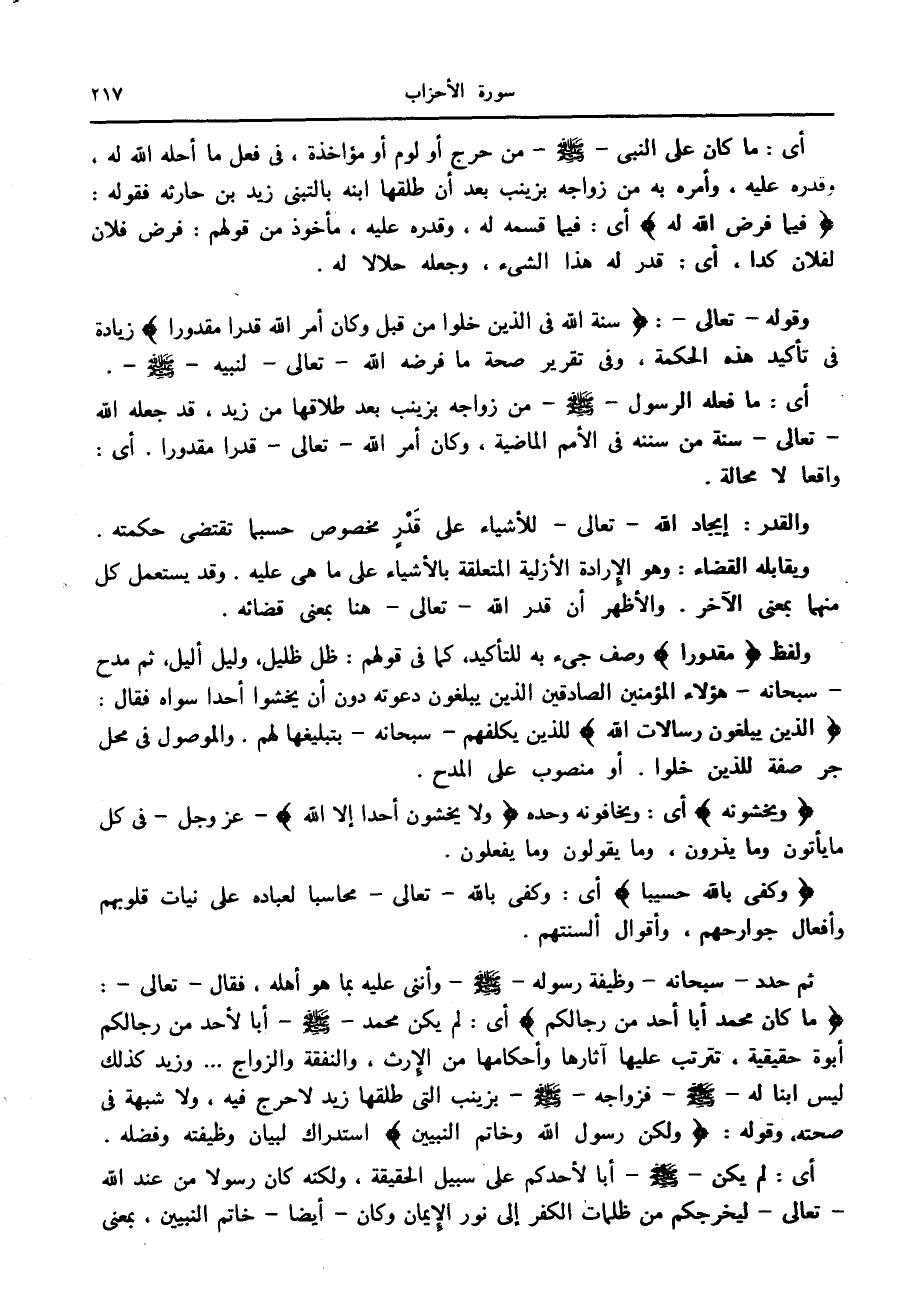 سورة الأحزاب ٢١٧
أى : ما كان على النبى – ﷺ – من حرج أو لوم أو مؤاخذة ، فى فعل ما أحله الله له ،
وقدره عليه ، وأمره به من زواجه بزينب بعد أن طلقها ابنه بالتبنى زيد بن حارثه فقوله :
﴿ فيما فرض الله له ﴾ أى : فيما قسمه له ، وقدره عليه ، مأخوذ من قولهم : فرض فلان
لفلان كدا ، أى : قدر له هذا الشىء ، وجعله حلالا له .
وقوله – تعالى – : ﴿ سنة الله فى الذين خلوا من قبل وكان أمر الله قدرا مقدورا ﴾ زيادة
فى تأكيد هذه الحكمة ، وفى تقرير صحة ما فرضه الله – تعالى – لنبيه – ﷺ – .
أى : ما فعله الرسول – ﷺ – من زواجه بزينب بعد طلاقها من زيد ، قد جعله الله
– تعالى – سنة من سننه فى الأمم الماضية ، وكان أمر الله – تعالى – قدرا مقدورا . أى :
واقعا لا محالة .
والقدر : إيجاد الله – تعالى – للأشياء على قَدْرٍ مخصوص حسبما تقتضى حكمته .
ويقابله القضاء : وهو الإرادة الأزلية المتعلقة بالأشياء على ما هى عليه . وقد يستعمل كل
منهما بمعنى الآخر . والأظهر أن قدر الله – تعالى – هنا بمعنى قضائه .
ولفظ ﴿ مقدورا ﴾ وصف جىء به للتأكيد، كما فى قولهم : ظل ظليل، وليل أليل، ثم مدح
– سبحانه – هؤلاء المؤمنين الصادقين الذين يبلغون دعوته دون أن يخشوا أحدا سواه فقال :
﴿ الذين يبلغون رسالات الله ﴾ للذين يكلفهم – سبحانه – بتبليغها لهم . والموصول فى محل
جر صفة للذين خلوا . أو منصوب على المدح .
﴿ ويخشونه ﴾ أى : ويخافونه وحده ﴿ ولا يخشون أحدا إلا الله ﴾ – عز وجل – فى كل
مايأتون وما يذرون ، وما يقولون وما يفعلون .
﴿ وكفى بالله حسيبا ﴾ أى : وكفى بالله – تعالى – محاسبا لعباده على نيات قلوبهم
وأفعال جوارحهم ، وأقوال ألسنتهم .
ثم حدد – سبحانه – وظيفة رسوله – ﷺ – وأثنى عليه بما هو أهله ، فقال – تعالى – :
﴿ ما كان محمد أبا أحد من رجالكم ﴾ أى : لم يكن محمد – ﷺ – أبا لأحد من رجالكم
أبوة حقيقية ، تترتب عليها آثارها وأحكامها من الإرث ، والنفقة والزواج ... وزيد كذلك
ليس ابنا له – ﷺ – فزواجه – ﷺ – بزينب التى طلقها زيد لاحرج فيه ، ولا شبهة فى
صحته، وقوله : ﴿ ولكن رسول الله وخاتم النبيين ﴾ استدراك لبيان وظيفته وفضله .
أى : لم يكن – ﷺ – أبا لأحدكم على سبيل الحقيقة ، ولكنه كان رسولا من عند الله
– تعالى – ليخرجكم من ظلمات الكفر إلى نور الإيمان وكان – أيضا – خاتم النبيين ، بمعنى